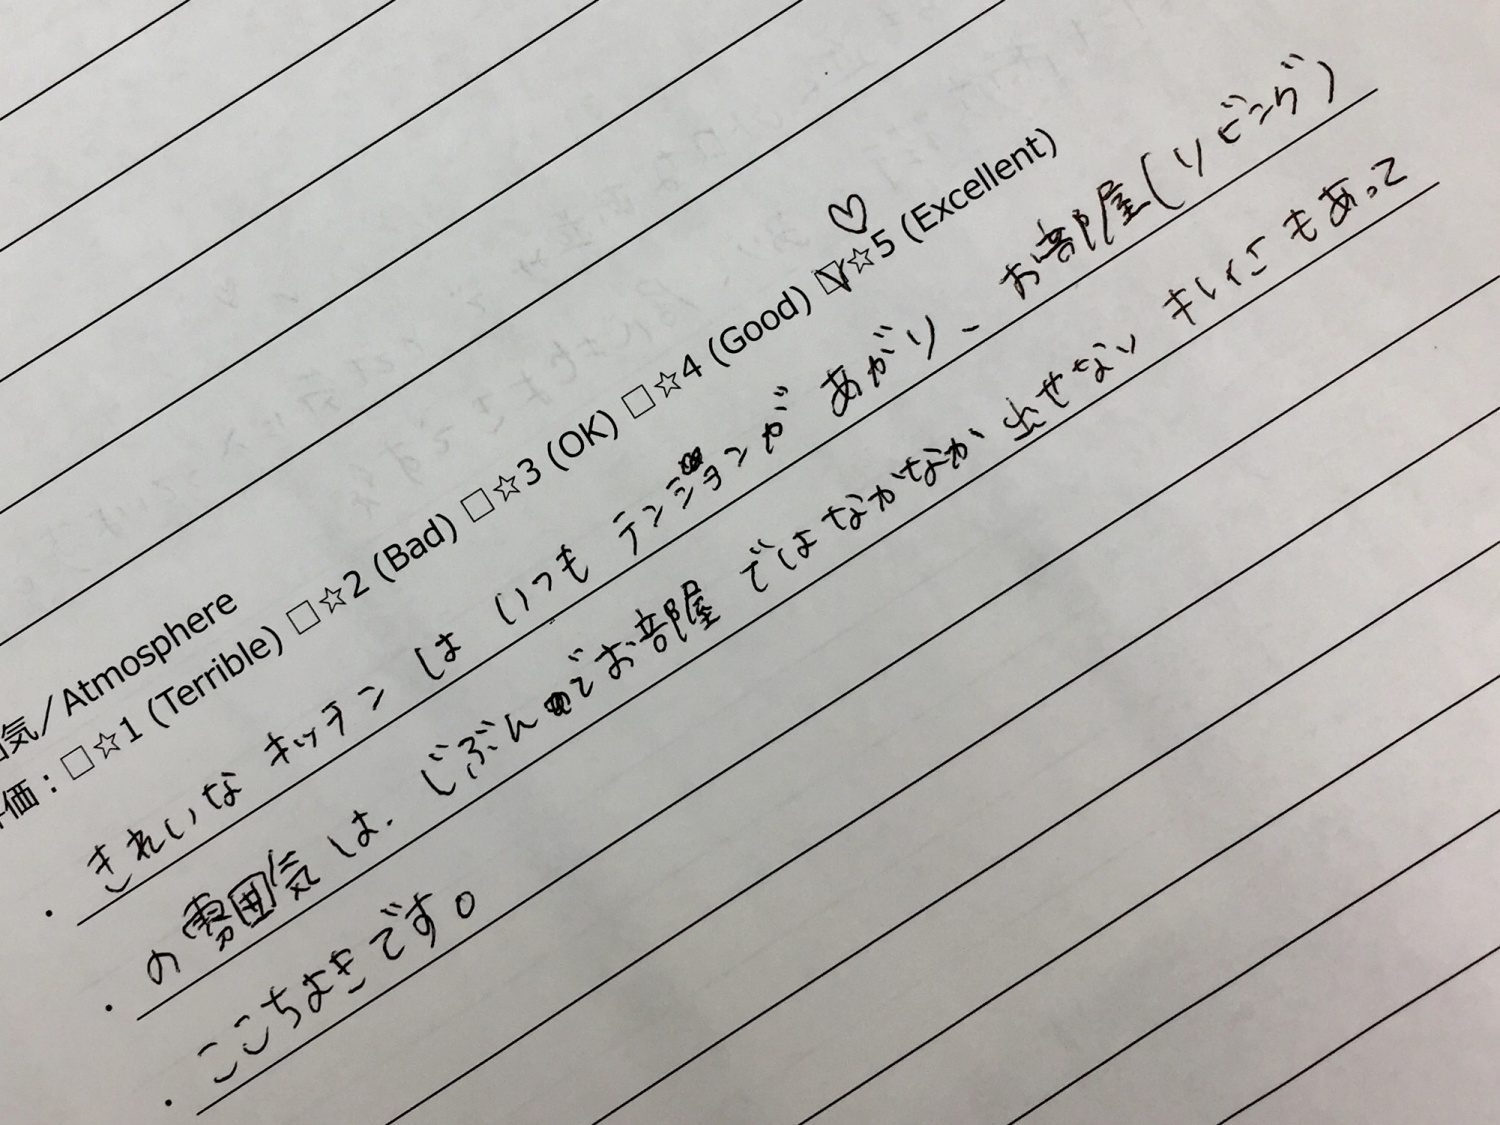 気／Atmosphere
価：□☆1 (Terrible) □☆2 (Bad) □☆3 (OK) □☆4 (Good) ☑☆5 (Excellent) ♡
・きれいな キッチン は いつも テンションが あがり、お部屋(リビング)
・の雰囲気は、じぶんでお部屋ではなかなか出せないキレイこもあって
・ここちよきです。